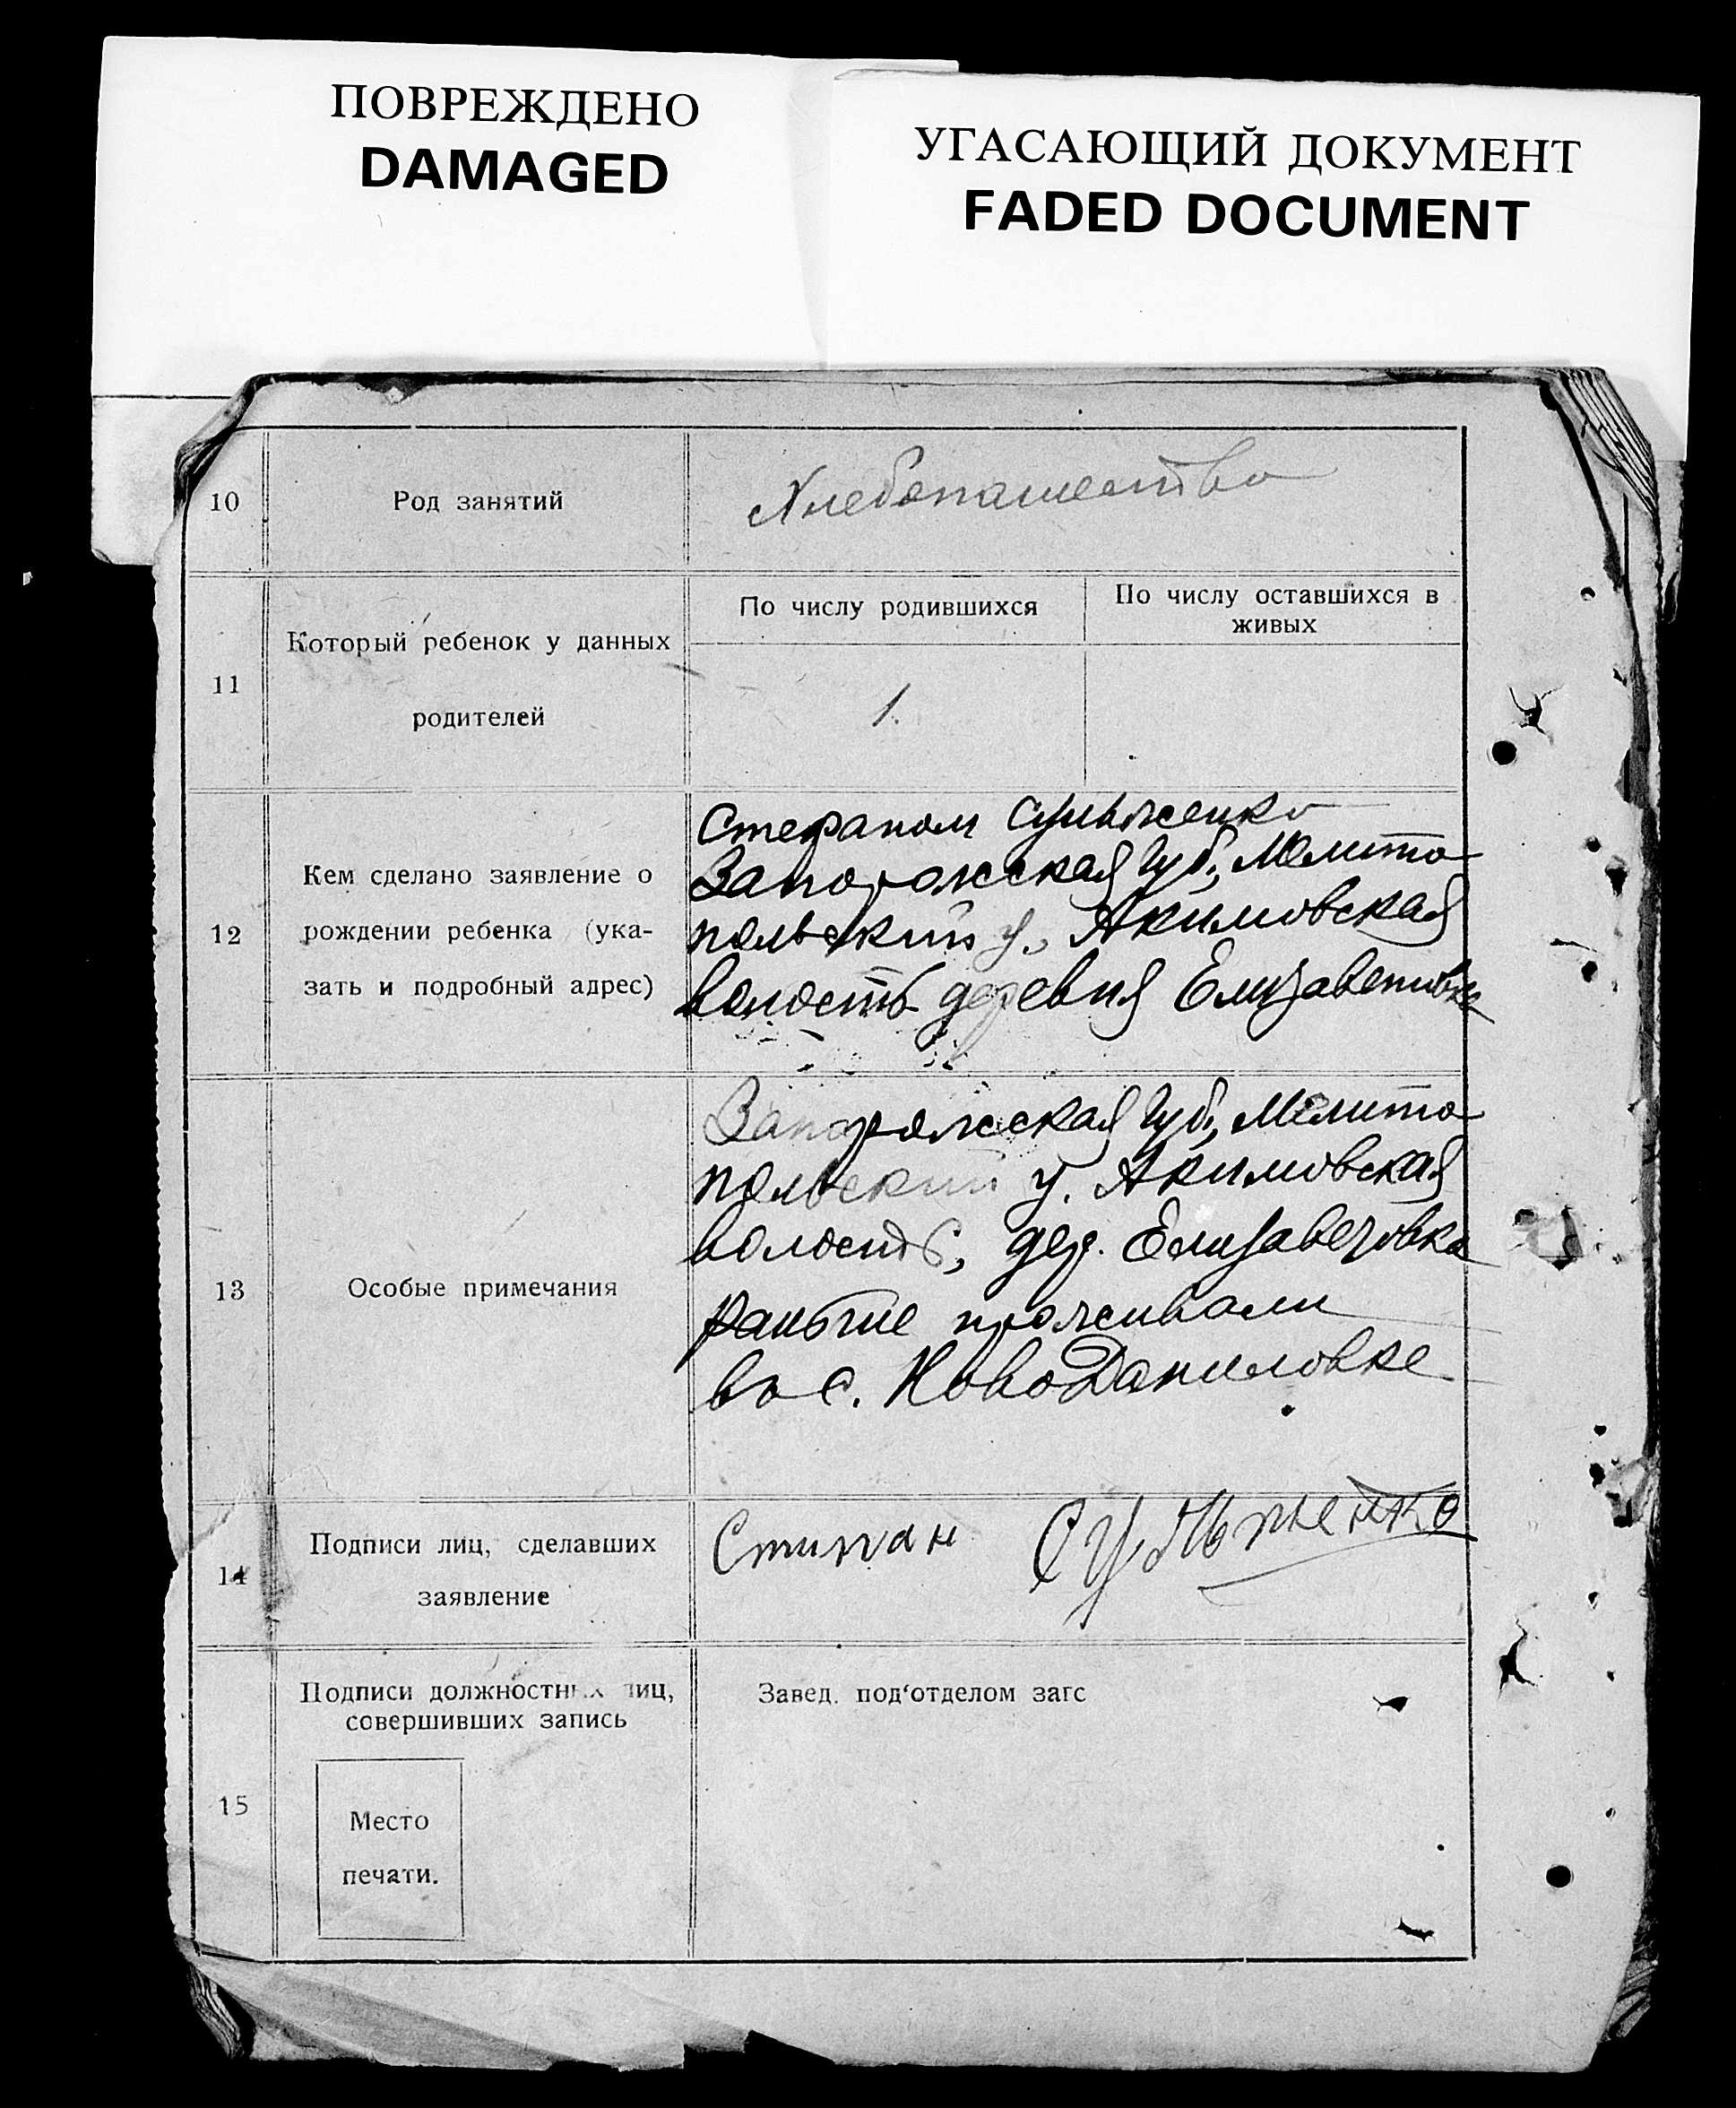 ПОВРЕЖДЕНО
DAMAGED
УГАСАЮЩИЙ ДОКУМЕНТ
FADED DOCUMENT
10
Род занятий
Хлебопашество
11
Который ребенок у данных
родителей
По числу родившихся
По числу оставшихся в
живых
1.
12
Кем сделано заявление о
рождении ребенка (ука-
зать и подробный адрес)
Стефаном Сульженко
Запорожская Губ., Мелито
польский у., Акимовская
волость деревня Елизаветовка
13
Особые примечания
Запорожская Губ., Мелито
польский у. Акимовская
волость, дер. Елизаветовка
раньше проживали
во с. НовоДаниловке
14
Подписи лиц, сделавших
заявление
Стипан Сульженко
15
Подписи должностных лиц,
совершивших запись
Завед. под‘отделом загс
Место
печати.